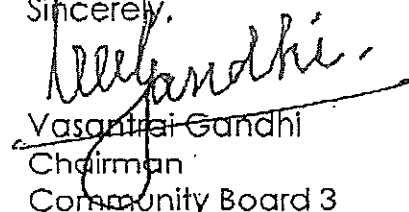 Sincerely,
Gandhi.
Vasantrai Gandhi
Chairman
Community Board 3